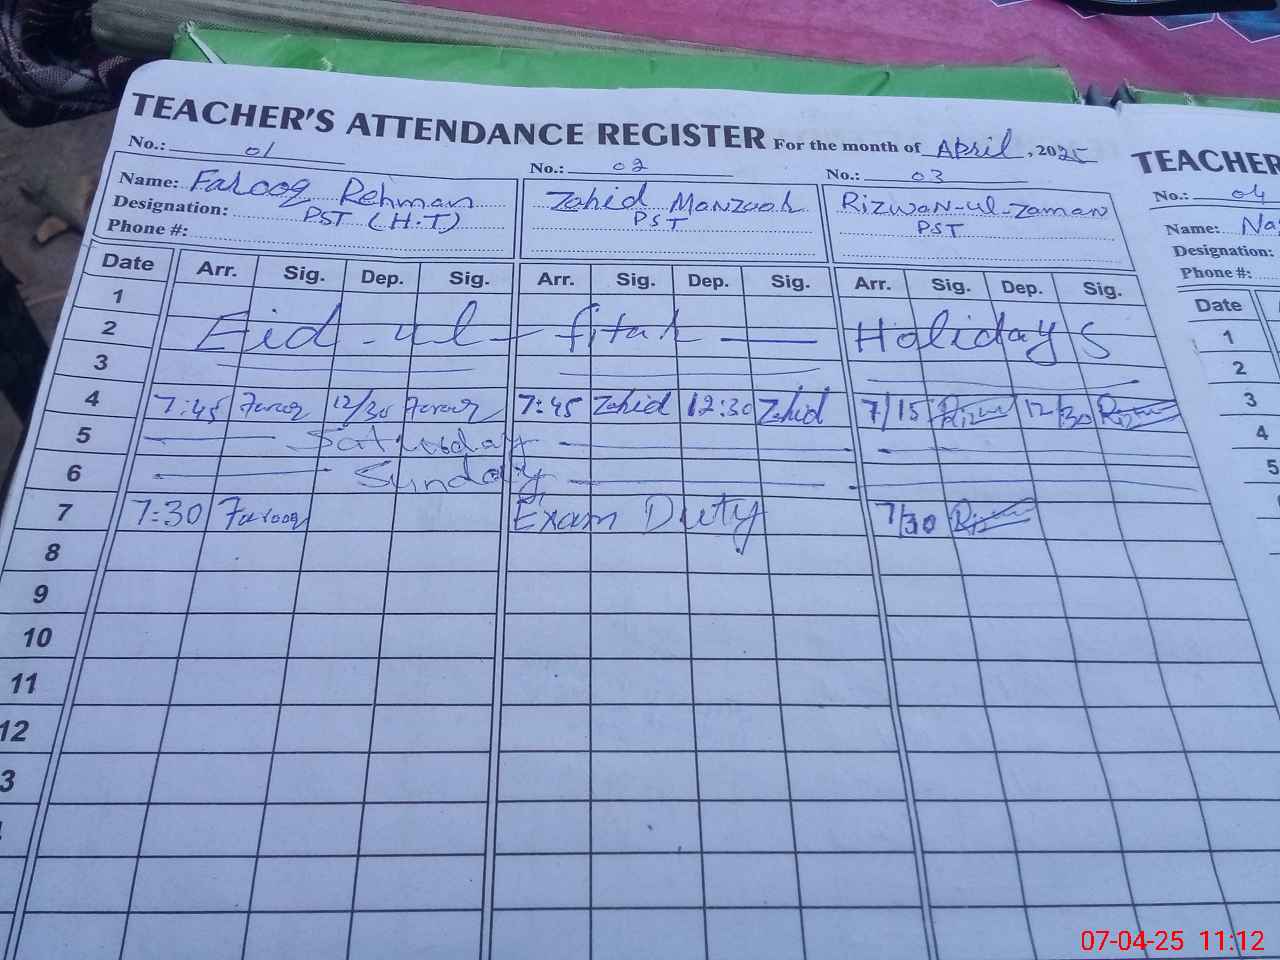 TEACHER'S ATTENDANCE REGISTER For the month of April, 2025
No.: 01 No.: 02 No.: 03
Name: Farooq Rehman Zahid Manzoor Rizwan-ul-Zaman
Designation: PST (H.T) PST PST
Phone #:
Date Arr. Sig. Dep. Sig. Arr. Sig. Dep. Sig. Arr. Sig. Dep. Sig.
1
2 Eid-ul-fitar Holidays
3
4 7:45 Farooq 12/30 Farooq 7:45 Zahid 12:30 Zahid 7/15 12/30
5 Saturday
6 Sunday
7 7:30 Farooq Exam Duty 7/30
8
9
10
11
12
3
TEACHER
No.: 04
Name: Na
Designation:
Phone #:
Date
1
2
3
4
5
07-04-25 11:12